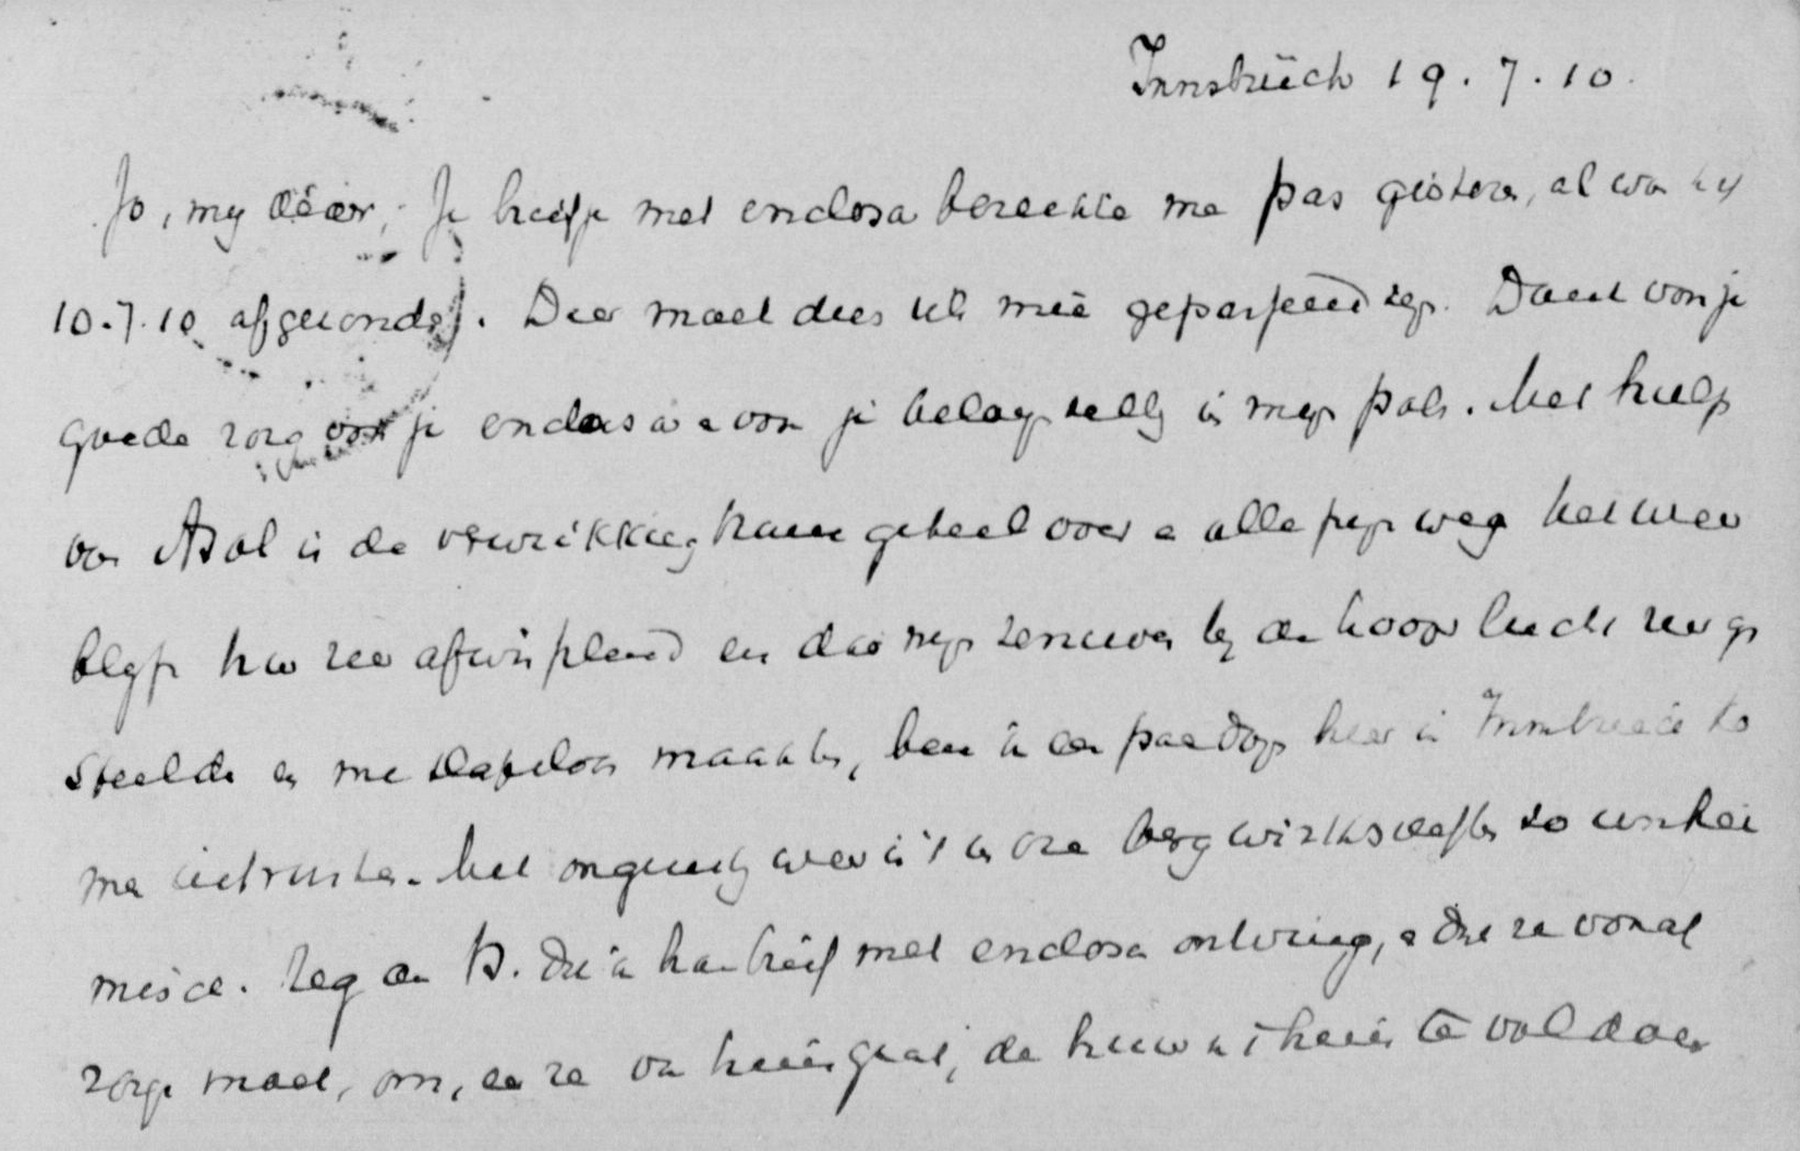 Innsbrück 19.7.10.
Jo, my déar, Je briefje met enclosa bereikte me pas gisteren, al was het
10.7.10 afgezonden. Daar moet dus iets mee gepasseerd zijn. Dank voor je
goede zorg voor je enclosa en voor je belangstelling in mijn pols. Met hulp
van is de verwrikking haast geheel over en alle pijn weg. Het weer
blijft hier zeer afwisselend en daar mijn zenuwen bij de hooge lucht
speelde en me slapeloos maakten, ben ik een paar dagen hier in Innsbrück te
me uitrusten. Met ongunstig weer is 't in die
misce. Zeg aan B. dat ik haar brief met enclosa ontving, en dat ze vooral
zorgen moet, om, eer ze van huis gaat, de huur van 't huis te voldoen